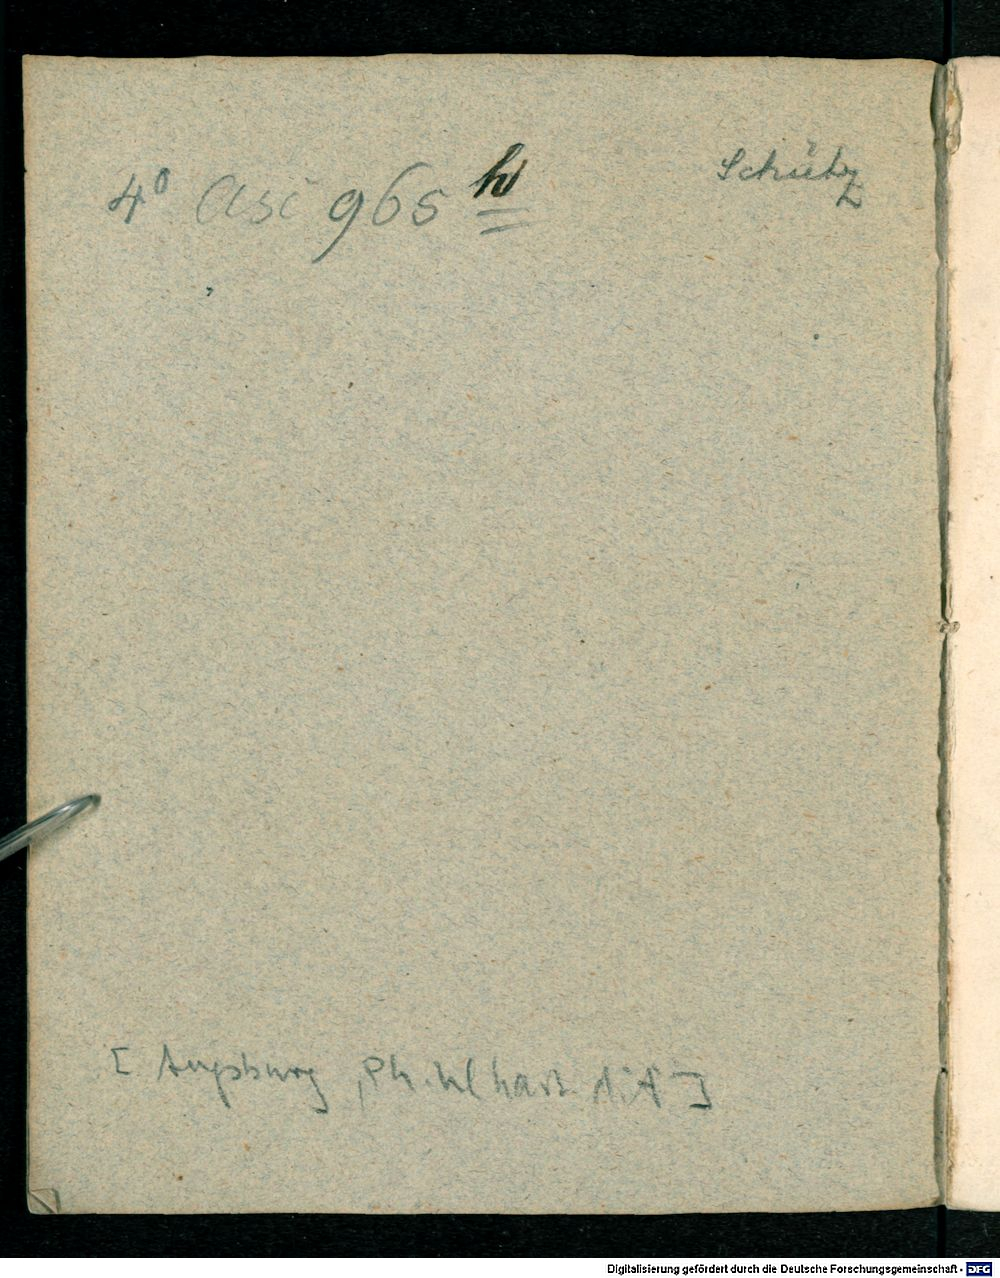 4° Asc 965 h
Schütz
[ Augsburg, Ph. Ulhart d. Ä ]
Digitalisierung gefördert durch die Deutsche Forschungsgemeinschaft - DFG